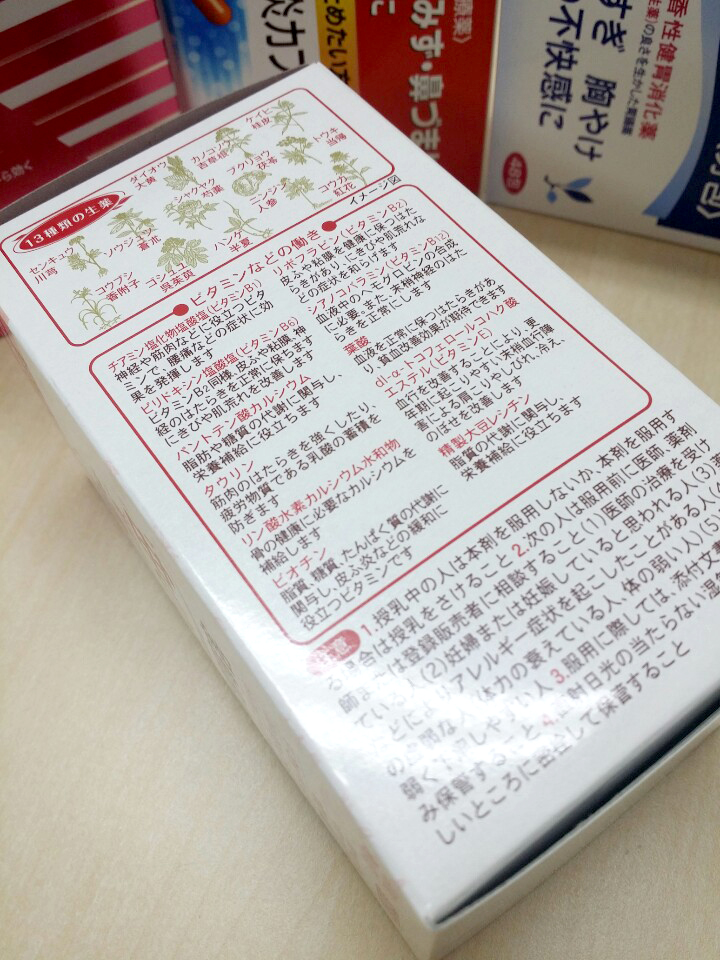 香性健胃消化薬
(生薬)の良さを生かした胃腸薬
すぎ 胸やけ
の不快感に
48包
みず・鼻づま
に
ためたいた
炎カプ
13種類の生薬
ダイオウ
大黄
カノコソウ
吉草根
ケイヒ
桂皮
シャクヤク
芍薬
ブクリョウ
茯苓
トウキ
当帰
センキュウ
川芎
ソウジュツ
蒼朮
ハンゲ
半夏
ニンジン
人参
コウカ
紅花
コウブシ
香附子
ゴシュユ
呉茱萸
イメージ図
ビタミンなどの働き
チアミン塩化物塩酸塩(ビタミンB1)
神経や筋肉などに役立つビタ
ミンで、腰痛などの症状に効
果を発揮します
ピリドキシン塩酸塩(ビタミンB6)
ビタミンB2同様、皮ふや粘膜、神
経のはたらきを正常に保ちます
にきびや肌荒れを改善します
パントテン酸カルシウム
脂肪や糖質の代謝に関与し、
栄養補給に役立ちます
タウリン
筋肉のはたらきを強くしたり、
疲労物質である乳酸の蓄積を
防ぎます
リン酸水素カルシウム水和物
骨の健康に必要なカルシウムを
補給します
ビオチン
脂質、糖質、たんぱく質の代謝に
関与し、皮ふ炎などの緩和に
役立つビタミンです
リボフラビン(ビタミンB2)
皮ふや粘膜を健康に保つはた
らきがあり、にきびや肌荒れな
どの症状を和らげます
シアノコバラミン(ビタミンB12)
血液中のヘモグロビンの合成
に必要。また、末梢神経のはた
らきを正常にします
葉酸
血液を正常に保つはたらきがあ
り、貧血改善効果が期待できます
dl-α-トコフェロールコハク酸
エステル(ビタミンE)
血行を改善することにより、更
年期に起こりやすい末梢血行障
害による肩こりやしびれ、冷え、
のぼせを改善します
精製大豆レシチン
脂質の代謝に関与し、
栄養補給に役立ちます
注意
1.授乳中の人は本剤を服用しないか、本剤を服用す
る場合は授乳をさけること 2.次の人は服用前に医師、薬剤
師または登録販売者に相談すること(1)医師の治療を受け
ている人(2)妊婦または妊娠していると思われる人(3)薬
などによりアレルギー症状を起こしたことがある人(
の虚弱な人(体力の衰えている人、体の弱い人)(5)
弱く下痢しやすい人 3.服用に際しては、添付文書
み保管すること 4.直射日光の当たらない湿
しいところに密栓して保管すること